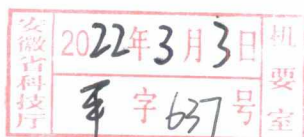 安徽省科技厅
2022年3月3日
字637号
机要室